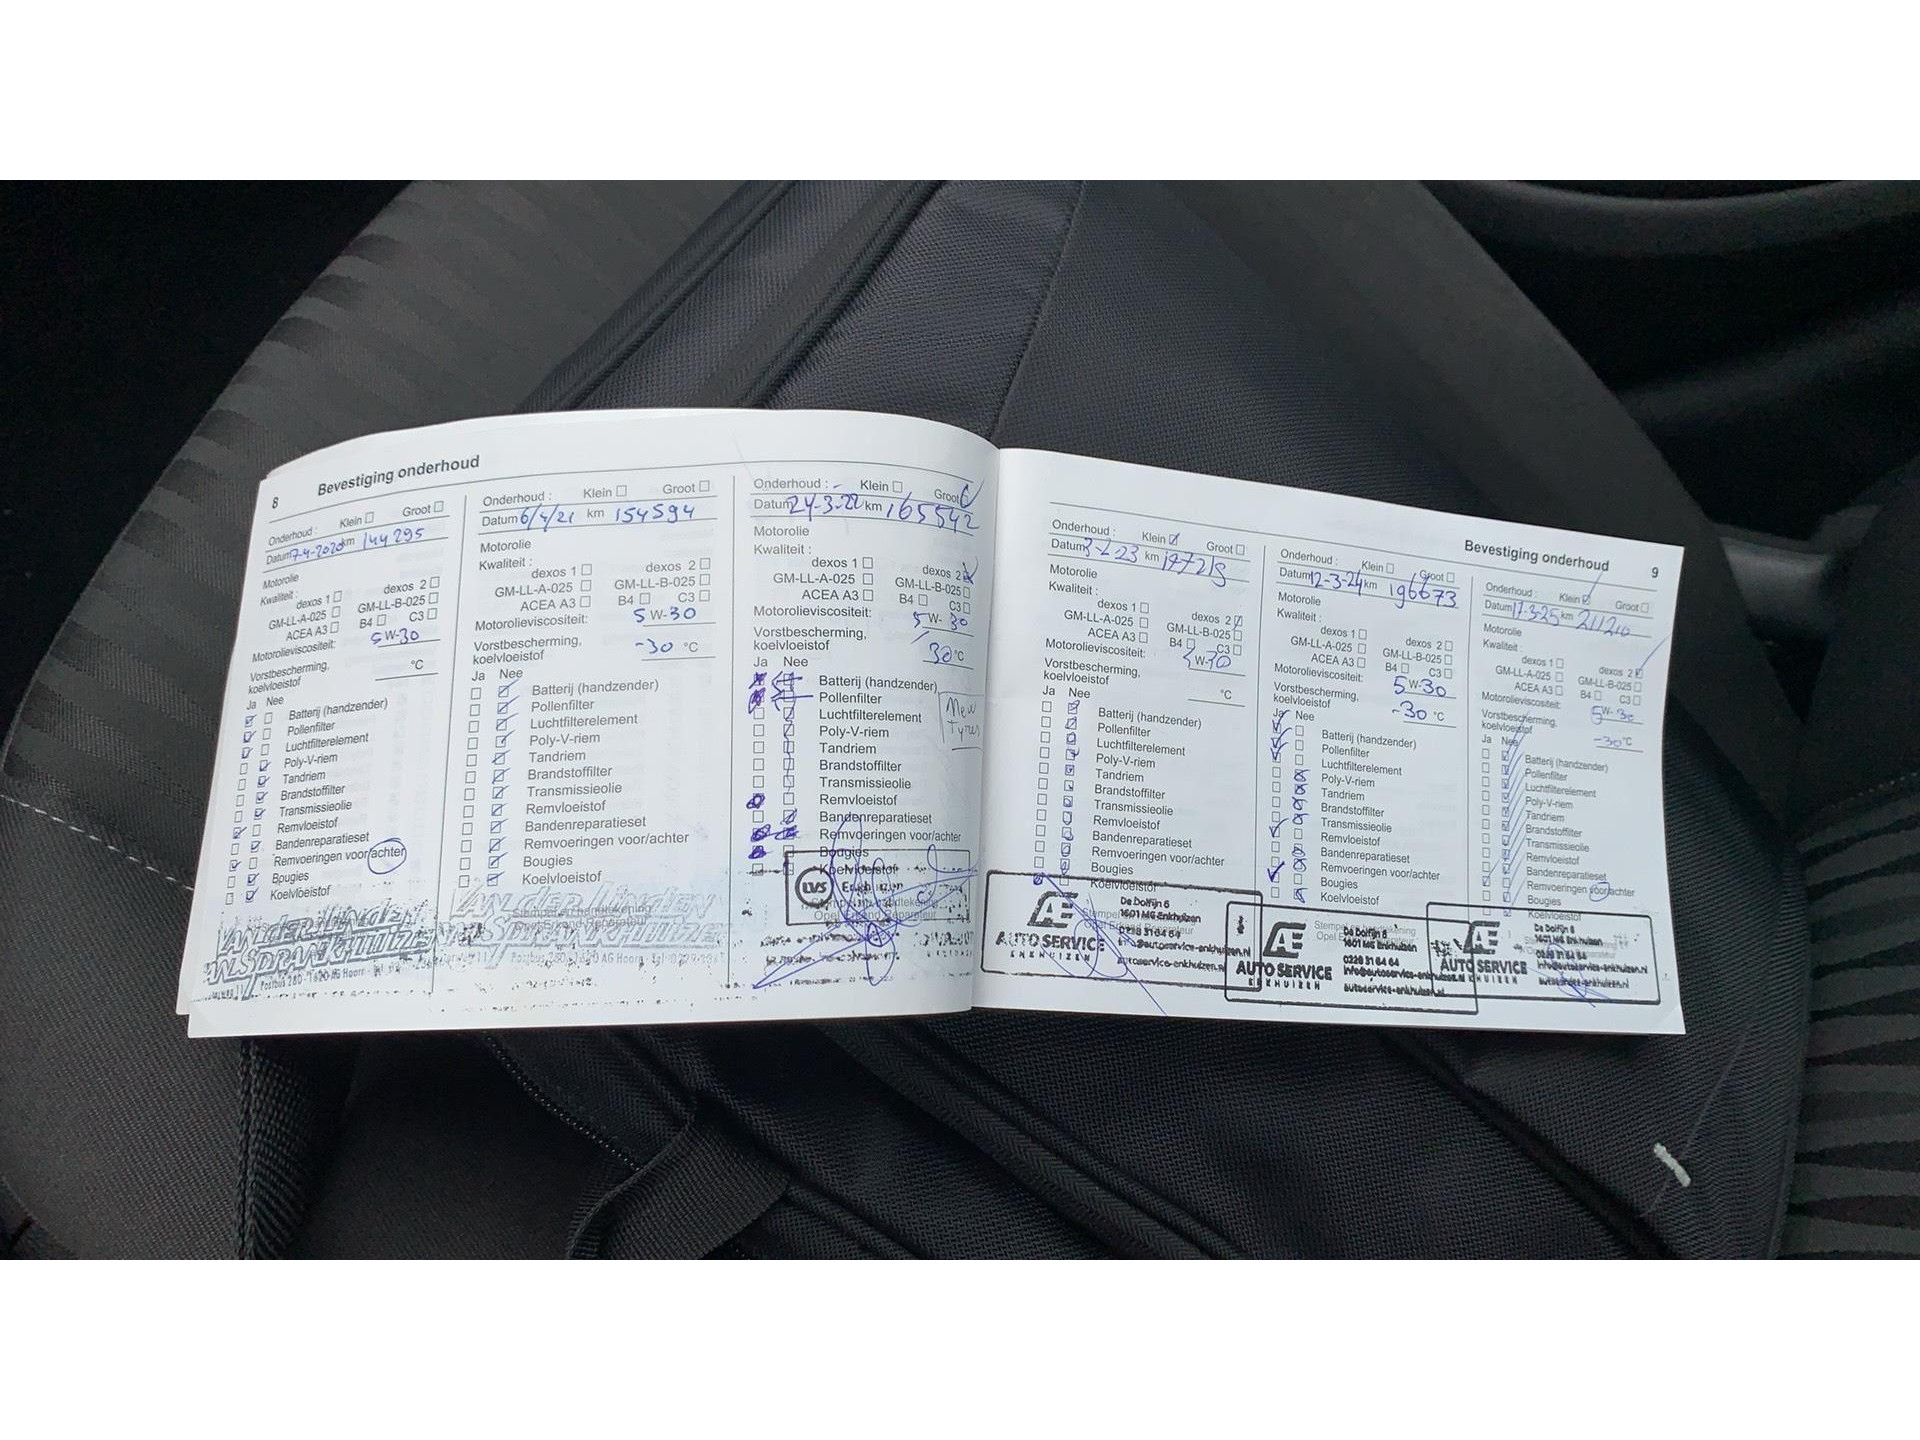 8 Bevestiging onderhoud
Onderhoud : Klein Groot
Datum 7-4-2020 km 144295
Motorolie
Kwaliteit :
dexos 1 dexos 2
GM-LL-A-025 GM-LL-B-025
ACEA A3 B4 C3
Motorolieviscositeit: 5 W-30
Vorstbescherming,
koelvloeistof °C
Ja Nee
Batterij (handzender)
Pollenfilter
Luchtfilterelement
Poly-V-riem
Tandriem
Brandstoffilter
Transmissieolie
Remvloeistof
Bandenreparatieset
Remvoeringen voor/achter
Bougies
Koelvloeistof
Postbus 280 - 1620 AG Hoorn
Onderhoud : Klein Groot
Datum 6/4/21 km 154594
Motorolie
Kwaliteit :
dexos 1 dexos 2
GM-LL-A-025 GM-LL-B-025
ACEA A3 B4 C3
Motorolieviscositeit: 5 W-30
Vorstbescherming,
koelvloeistof -30 °C
Ja Nee
Batterij (handzender)
Pollenfilter
Luchtfilterelement
Poly-V-riem
Tandriem
Brandstoffilter
Transmissieolie
Remvloeistof
Bandenreparatieset
Remvoeringen voor/achter
Bougies
Koelvloeistof
Stempel en handtekening
Postbus 280 - 1620 AG Hoorn
Onderhoud : Klein Groot
Datum 24-3-22 km 165542
Motorolie
Kwaliteit :
dexos 1 dexos 2
GM-LL-A-025 GM-LL-B-025
ACEA A3 B4 C3
Motorolieviscositeit: 5 W-30
Vorstbescherming,
koelvloeistof 30 °C
Ja Nee
Batterij (handzender)
Pollenfilter
New
Tyres
Luchtfilterelement
Poly-V-riem
Tandriem
Brandstoffilter
Transmissieolie
Remvloeistof
Bandenreparatieset
Remvoeringen voor/achter
Bougies
Koelvloeistof
LVS Enkhuizen
Opel Erkend Reparateur
Bevestiging onderhoud 9
Onderhoud : Klein Groot
Datum km
Motorolie
Kwaliteit :
dexos 1 dexos 2
GM-LL-A-025 GM-LL-B-025
ACEA A3 B4 C3
Motorolieviscositeit: 5 W-30
Vorstbescherming,
koelvloeistof °C
Ja Nee
Batterij (handzender)
Pollenfilter
Luchtfilterelement
Poly-V-riem
Tandriem
Brandstoffilter
Transmissieolie
Remvloeistof
Bandenreparatieset
Remvoeringen voor/achter
Bougies
Koelvloeistof
AE
AUTO SERVICE
ENKHUIZEN
De Dolfijn 6
1601 MG Enkhuizen
0228 31 64 64
info@autoservice-enkhuizen.nl
autoservice-enkhuizen.nl
Onderhoud : Klein Groot
Datum 12-3-24 km 196673
Motorolie
Kwaliteit :
dexos 1 dexos 2
GM-LL-A-025 GM-LL-B-025
ACEA A3 B4 C3
Motorolieviscositeit: 5 W-30
Vorstbescherming,
koelvloeistof -30 °C
Ja Nee
Batterij (handzender)
Pollenfilter
Luchtfilterelement
Poly-V-riem
Tandriem
Brandstoffilter
Transmissieolie
Remvloeistof
Bandenreparatieset
Remvoeringen voor/achter
Bougies
Koelvloeistof
AE
AUTO SERVICE
ENKHUIZEN
De Dolfijn 6
1601 MG Enkhuizen
0228 31 64 64
info@autoservice-enkhuizen.nl
autoservice-enkhuizen.nl
Onderhoud : Klein Groot
Datum 17-3-25 km 211210
Motorolie
Kwaliteit :
dexos 1 dexos 2
GM-LL-A-025 GM-LL-B-025
ACEA A3 B4 C3
Motorolieviscositeit: 5 W-30
Vorstbescherming,
koelvloeistof -30 °C
Ja Nee
Batterij (handzender)
Pollenfilter
Luchtfilterelement
Poly-V-riem
Tandriem
Brandstoffilter
Transmissieolie
Remvloeistof
Bandenreparatieset
Remvoeringen voor/achter
Bougies
Koelvloeistof
AE
AUTO SERVICE
ENKHUIZEN
De Dolfijn 6
1601 MG Enkhuizen
0228 31 64 64
info@autoservice-enkhuizen.nl
autoservice-enkhuizen.nl